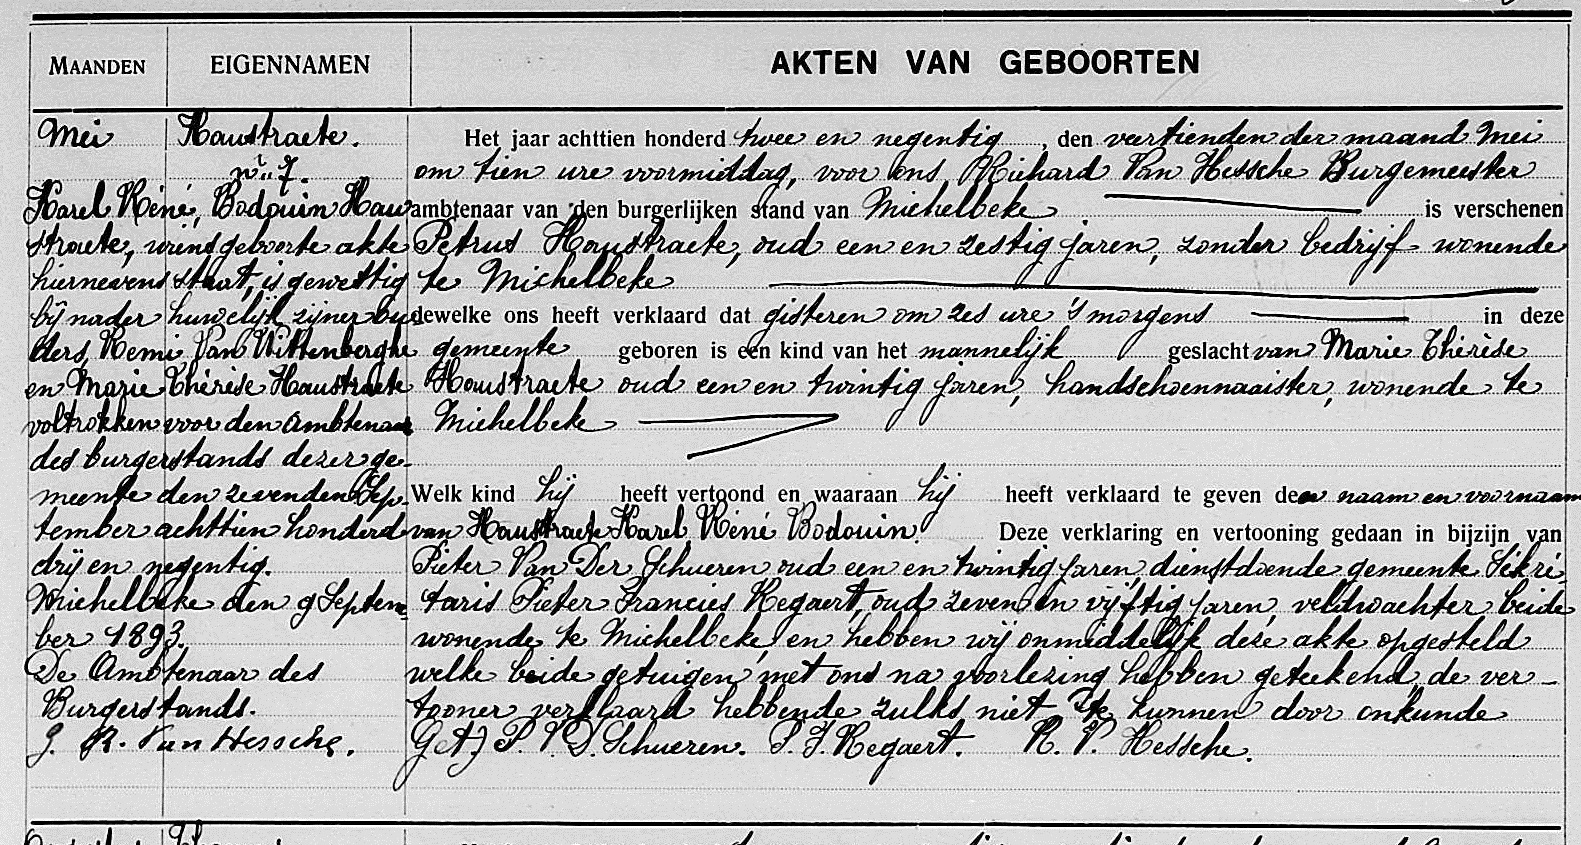 MAANDEN
EIGENNAMEN
AKTEN VAN GEBOORTEN
Mei
Haustraete.
n.. 7.
Karel Réné, Bodouin Hau
straete, wiens geboorte akte
hiernevens staat, is gewettig
bij nader huwelijk zijner ou
ders, Remi Van Wittenberghe
en Marie Thérèse Haustraete
voltrokken voor den ambtenaar
des burgerstands dezer ge-
meente den zevenden Sep-
tember achttien honderd
drij en negentig.
Michelbeke den 9 Septem
ber 1893.
De Ambtenaar des
Burgerstands.
g. R. Van Hessche.
Het jaar achttien honderd twee en negentig, den veertienden der maand Mei
om tien ure voormiddag, voor ons Richard Van Hessche Burgemeester
ambtenaar van den burgerlijken stand van Michelbeke is verschenen
Petrus Haustraete, oud een en zestig jaren, zonder bedrijf wonende
te Michelbeke
dewelke ons heeft verklaard dat gisteren om zes ure 's morgens in deze
gemeente geboren is een kind van het mannelijk geslacht van Marie Thérèse
Haustraete oud een en twintig jaren, handschoennaaister, wonende te
Michelbeke
Welk kind hij heeft vertoond en waaraan hij heeft verklaard te geven den naam en voornaam
van Haustraete Karel Réné Bodouin. Deze verklaring en vertooning gedaan in bijzijn van
Pieter Van Der Schueren oud een en twintig jaren, dienstdoende gemeente Sékré-
taris Pieter Francies Kegaert, oud zeven en vijftig jaren, veldwachter beide
wonende te Michelbeke, en hebben wij onmiddelijk deze akte opgesteld
welke beide getuigen met ons na voorlezing hebben geteekend, de ver-
tooner verklaard hebbende zulks niet te kunnen door onkunde
(Get.) P. V. D. Schueren. P. F. Kegaert. R. V. Hessche.